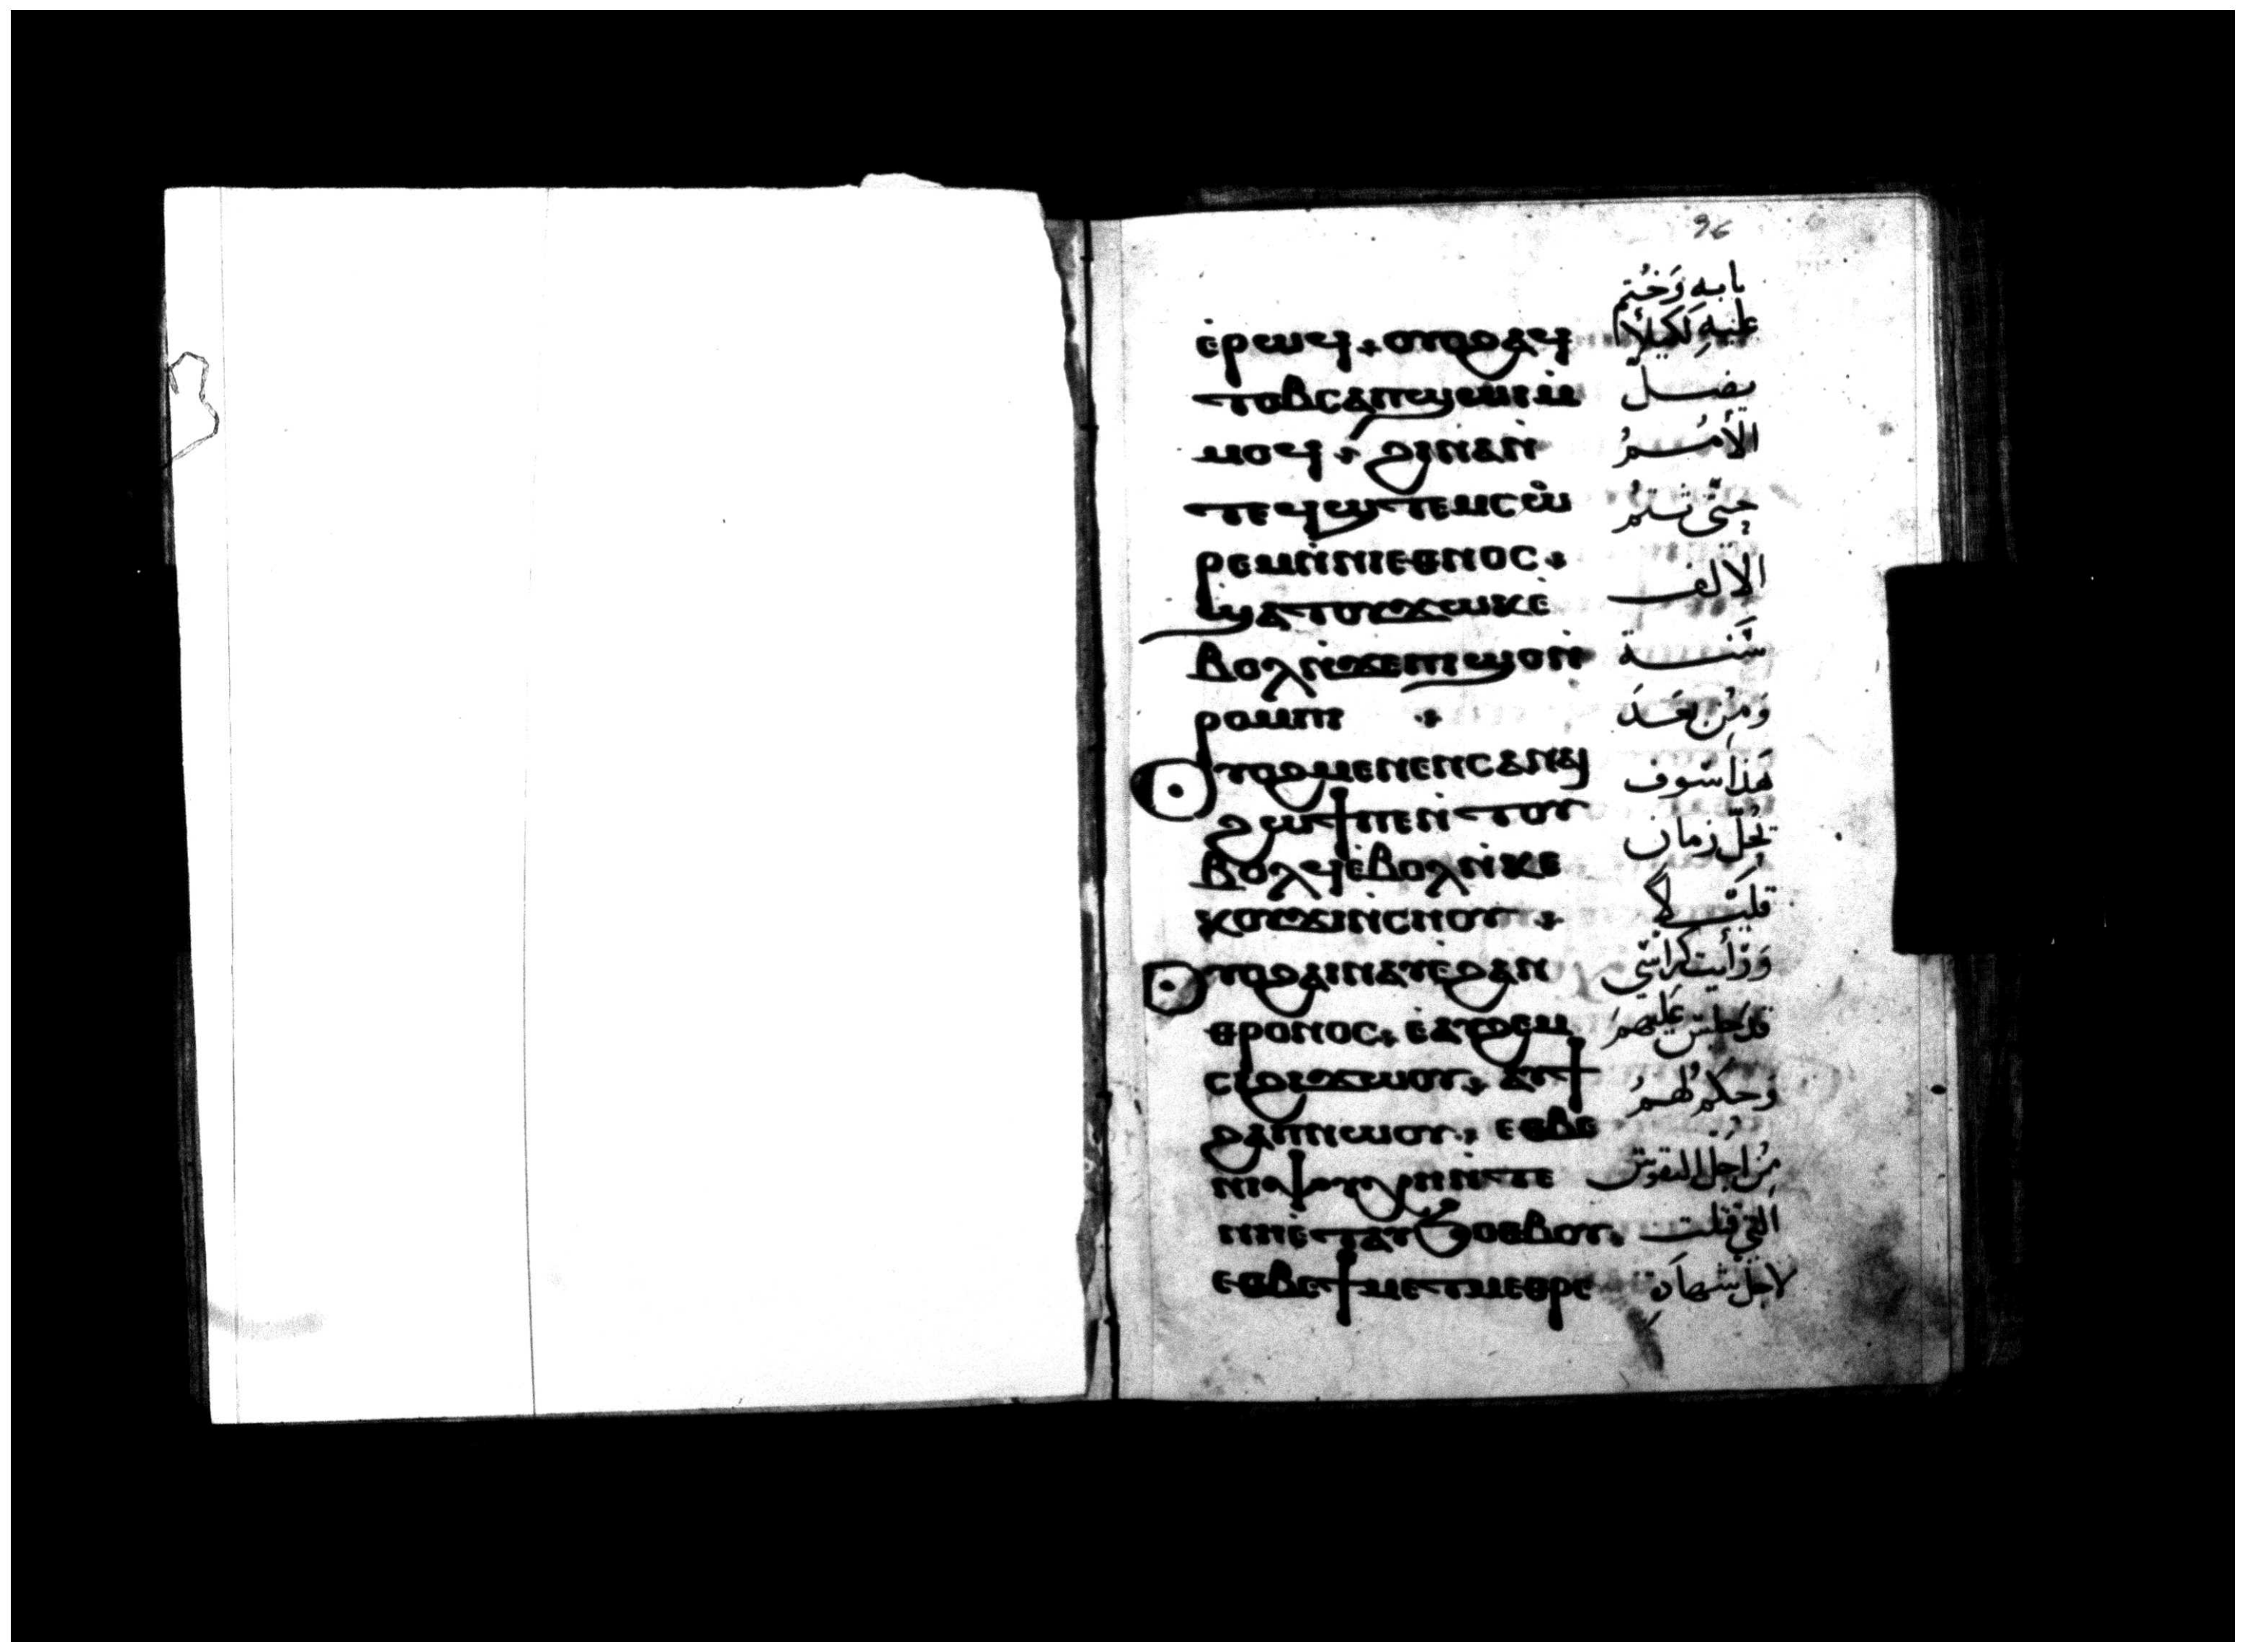 96
ⲉ̀ⲣⲱϥ ⲟⲩⲟϩⲁϥ
ⲧⲟⲃⲥⲁⲡϣⲱⲓⲙ̀
ⲙⲟϥ ϩⲓⲛⲁⲛ̀
ⲧⲉϥϣⲧⲉⲙⲥⲱ̀
ⲣⲉⲙⲛ̀ⲛⲓⲉⲑⲛⲟⲥ
ϣⲁⲧⲟⲩϫⲱⲕⲉ̀
ⲃⲟⲗⲛ̀ϫⲉⲡⲓϣⲟⲛ̀
ⲣⲟⲙⲡⲓ
ⲟⲩⲟϩⲙⲉⲛⲉⲛⲥⲁⲛⲁⲓ
ϩⲱϯⲡⲉⲛ̀ⲧⲟⲩ
ⲃⲟⲗϥⲉ̀ⲃⲟⲗⲛ̀ⲕⲉ
ⲕⲟⲩϫⲓⲛ̀ⲥⲏⲟⲩ
ⲟⲩⲟϩⲁⲓⲛⲁⲩⲉ̀ϩⲁⲛ
ⲑⲣⲟⲛⲟⲥ ⲉ̀ⲁⲩϩⲉⲙ
ⲥⲓϩⲓϫⲱⲟⲩ ⲁⲩϯ
ϩⲁⲡⲛⲱⲟⲩ ⲉⲑⲃⲉ
ⲛⲓⲯⲩⲭⲏⲛ̀ⲧⲉ
ⲛⲏⲉ̀ⲧⲁⲩϧⲟⲑⲃⲟⲩ
ⲉⲑⲃⲉϯⲙⲉⲧⲙⲉⲑⲣⲉ
بابه وَختم
عليهِ لكيلا
يضل
الأمم
حتى تتم
الالف
سَنة
وَمِن بعَد
هَذا سوف
يُحلّ زمان
وَرأيت كراسي
قد جلس عليهم
وَحكم لهم
مِن اجل النفوس
التي قتلت
لاجل شهادة